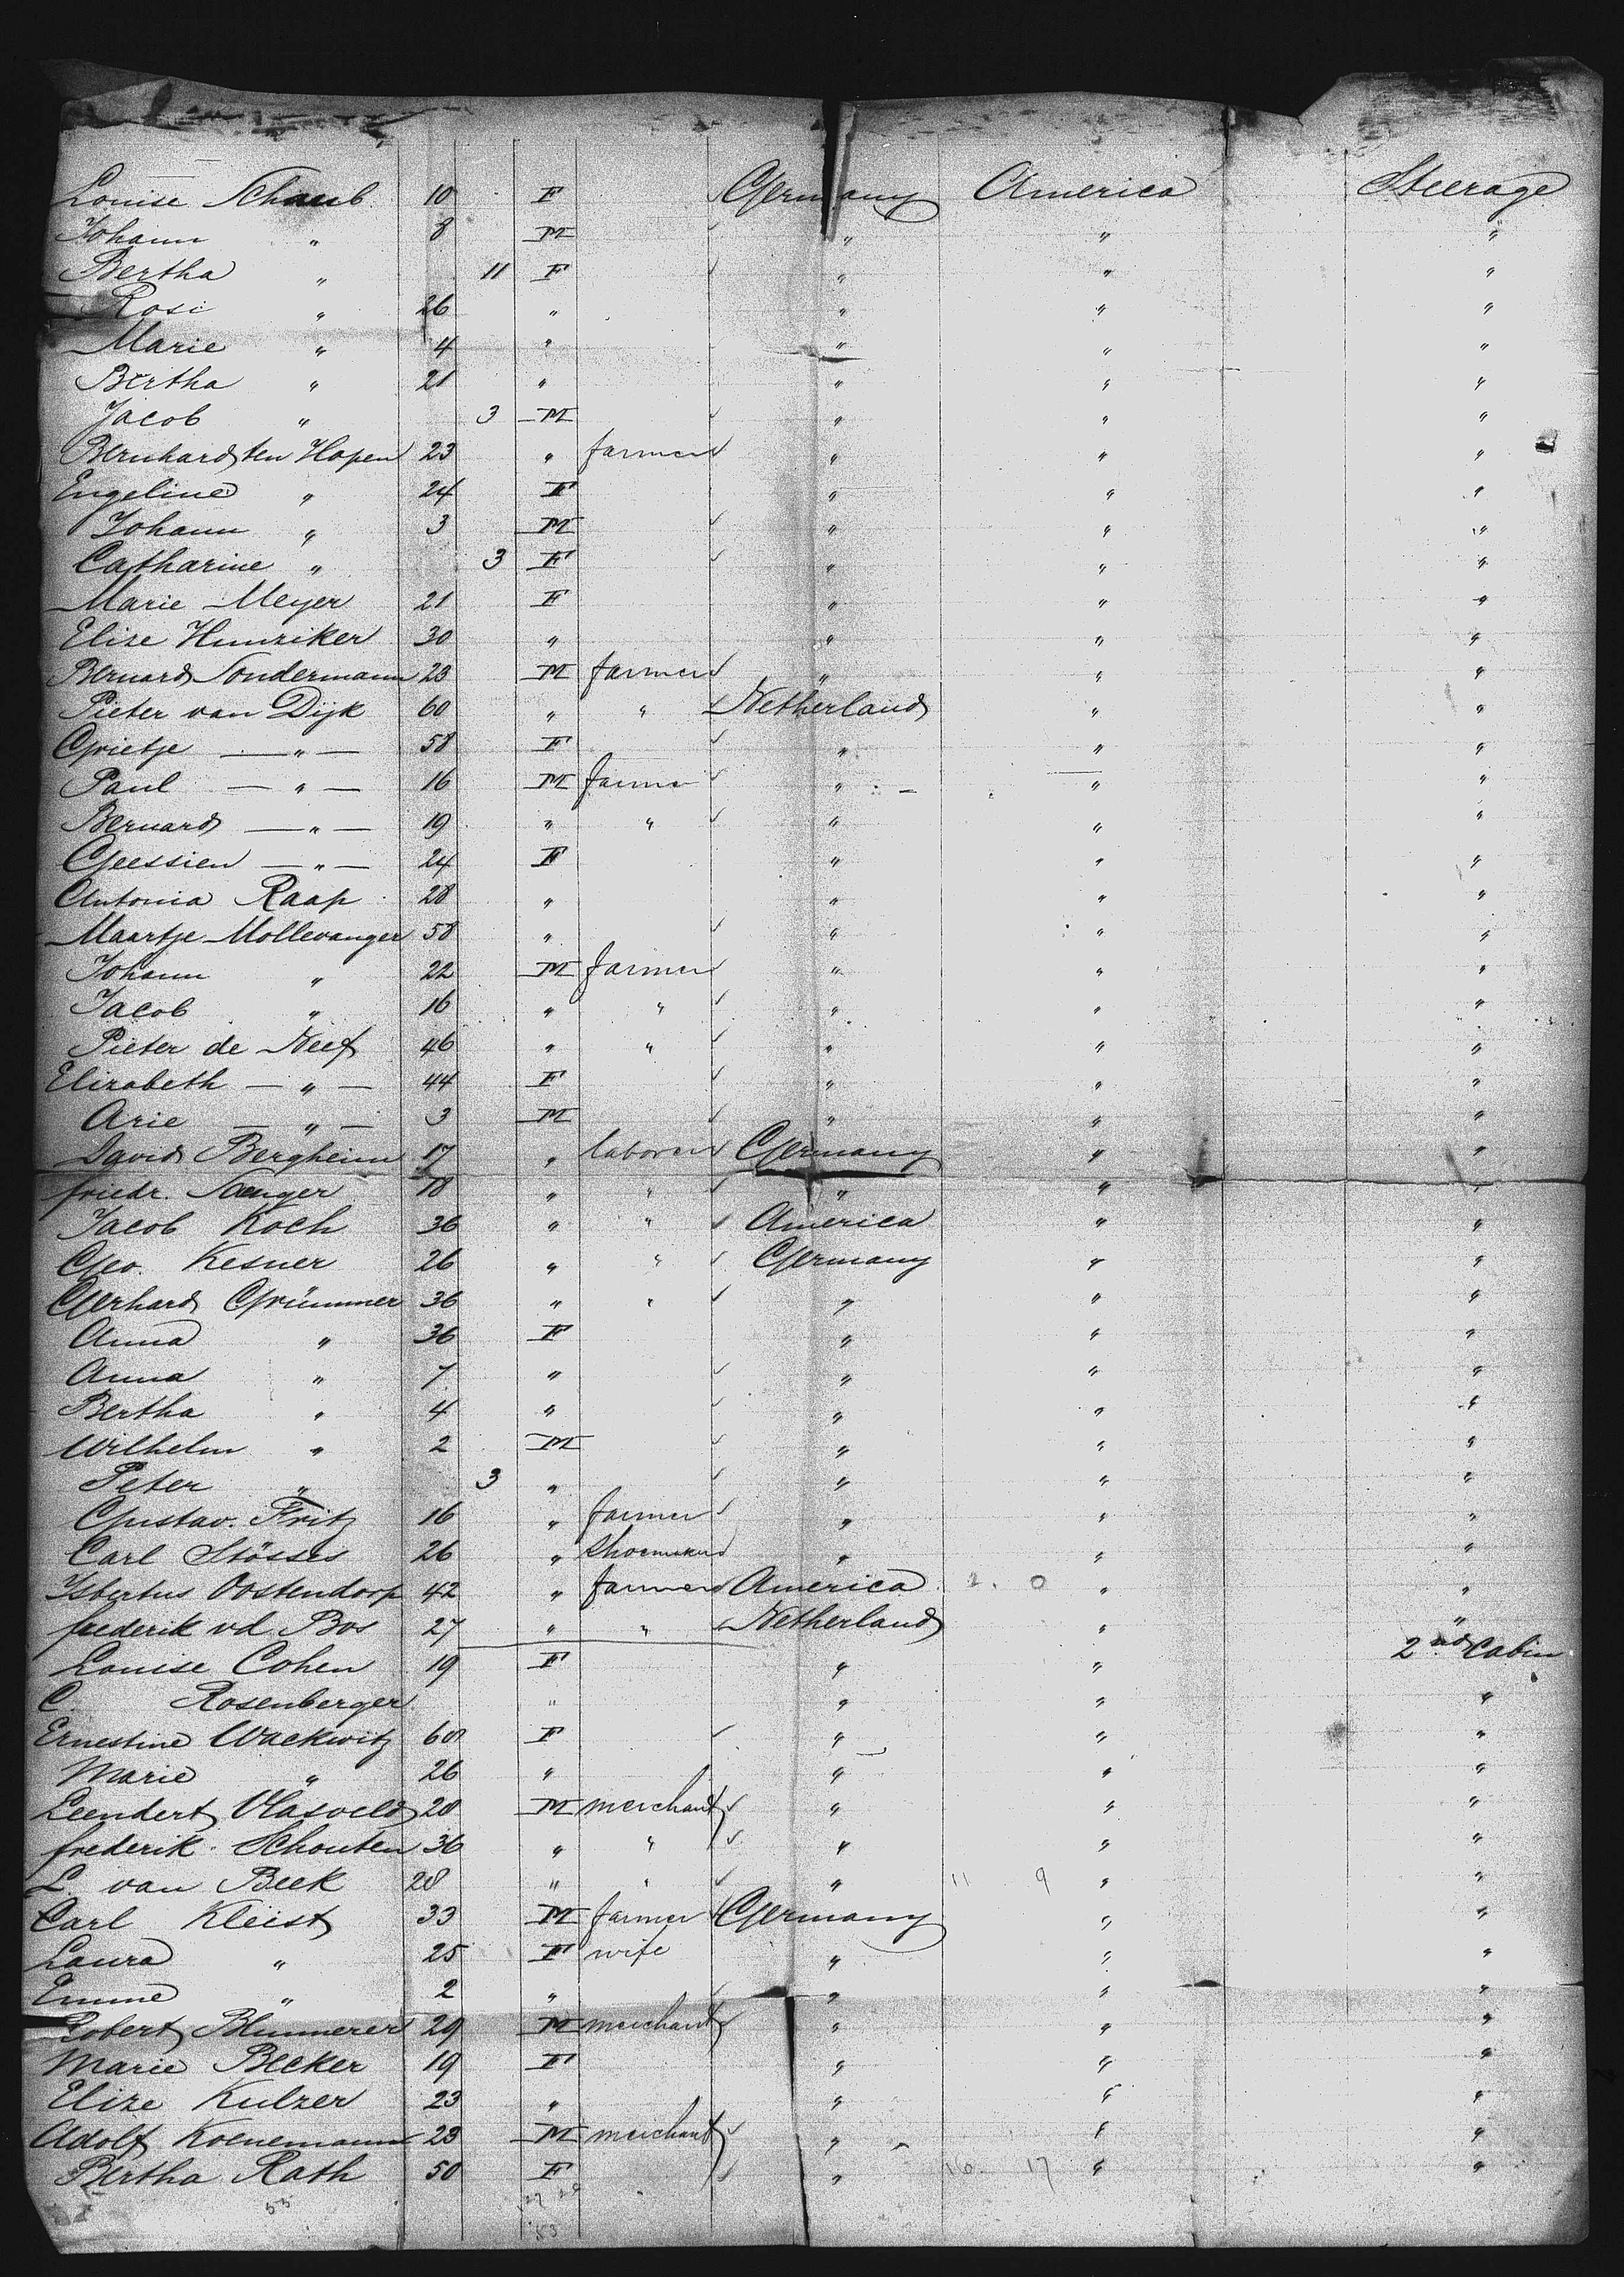 Louise Schaub 10 F Germany America Steerage
Johann " 8 M " " "
Bertha " 11 F " " "
Rosi " 26 " " " "
Marie " 4 " " " "
Bertha " 21 " " " "
Jacob " 3 M " " "
Bernhard ten Hopen 23 " farmer " " "
Engeline " 24 F " " "
Johann " 3 M " " "
Catharine " 3 F " " "
Marie Meyer 21 F " " "
Elise Hunziker 30 " " " "
Bernard Sondermann 23 M farmer " " "
Pieter van Dijk 60 " " Netherland " "
Grietje — " — 58 F " " "
Paul — " — 16 M farmer " " "
Bernard — " — 19 " " " " "
Geessien — " — 24 F " " "
Antonia Raap 28 " " " "
Maartje Mollevanger 58 " " " "
Johann " 22 M farmer " " "
Jacob " 16 " " " " "
Pieter de Neef 46 " " " " "
Elizabeth — " — 44 F " " "
Arie — " — 3 M " " "
David Bergheim 17 " laborer Germany " "
friedr. Saenger 18 " " " " "
Jacob Koch 36 " " America " "
Geo. Kesner 26 " " Germany " "
Gerhard Grümmer 36 " " " " "
Anna " 36 F " " "
Anna " 7 " " " "
Bertha " 4 " " " "
Wilhelm " 2 M " " "
Peter " 3 " " " "
Gustav. Fritz 16 " farmer " " "
Carl Stösses 26 " Shoemaker " " "
Ysbertus Oostendorp 42 " farmer America 2. 0 " "
frederik vd. Bos 27 " " Netherland " "
Louise Cohen 19 F " " 2nd Cabin
C. Rosenberger " " " "
Ernestine Wackwitz 60 F " " "
Marie " 26 " " " "
Leendert Vlasveld 28 M merchant " " "
frederik Schouten 36 " " " " "
L. van Beek 28 " " " 11 9 " "
Carl Kleist 33 M farmer Germany " "
Laura " 25 F wife " " "
Emme " 2 " " " "
Robert Blummerer 29 M merchant " " "
Marie Becker 19 F " " "
Elize Kulzer 23 " " " "
Adolf Koenemann 23 M merchant " " "
Bertha Rath 50 F " 16. 17 " "
55 27 28
53